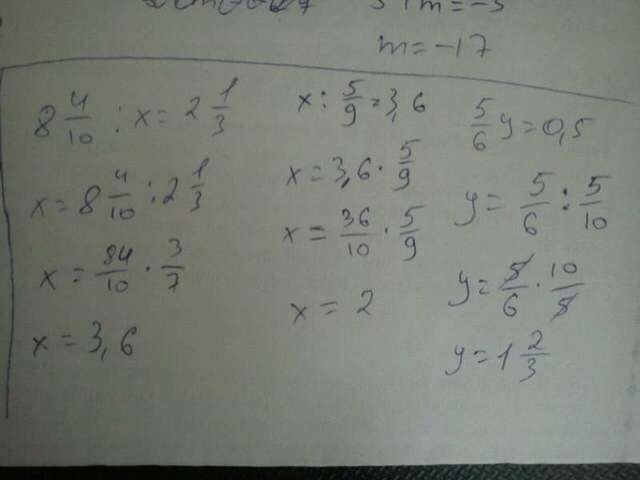 m = -17
8 4/10 : x = 2 1/3
x = 8 4/10 : 2 1/3
x = 84/10 · 3/7
x = 3,6
x : 5/9 = 3,6
x = 3,6 · 5/9
x = 36/10 · 5/9
x = 2
5/6 y = 0,5
y = 5/6 : 5/10
y = 5/6 · 10/5
y = 1 2/3